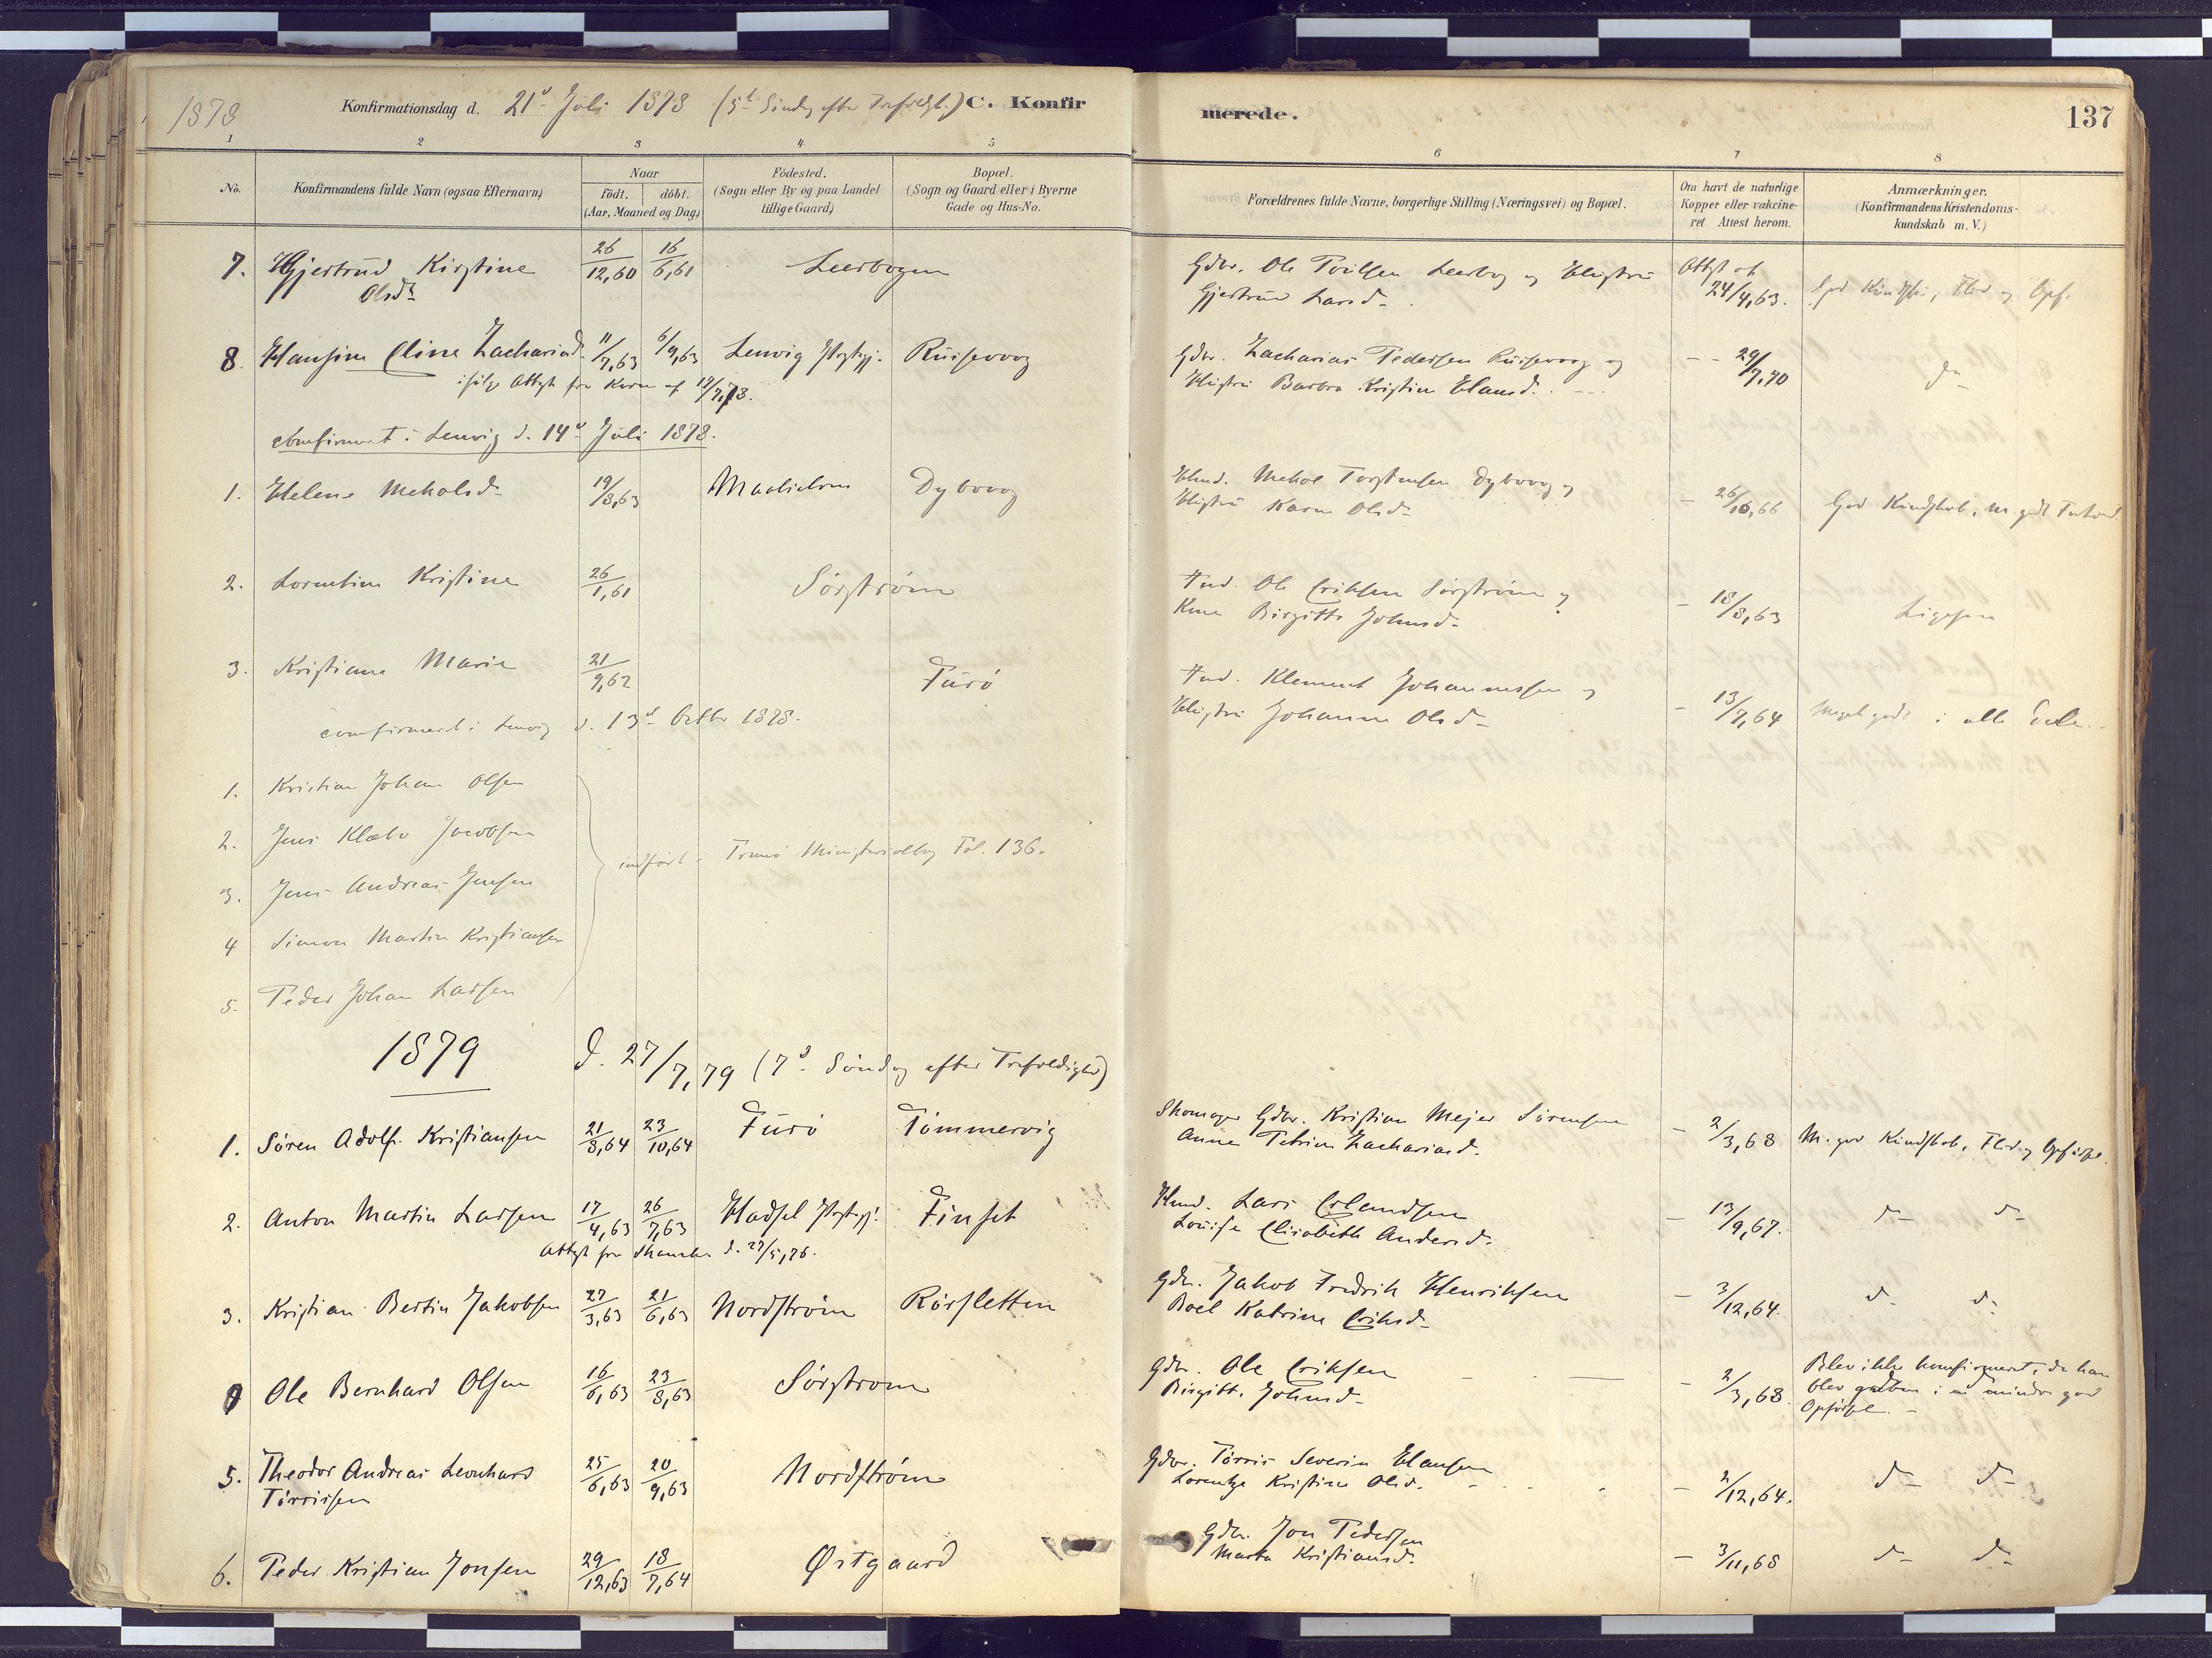 1878
Konfirmationsdag d. 21d Juli 1878 (5te Søndag efter Trefoldgh.) C. Konfir
merede.
137
1 2 3 4 5 6 7 8
No.
Konfirmandens fulde Navn (ogsaa Efternavn)
Naar
födt. döbt.
(Aar, Maaned og Dag)
Födested.
(Sogn eller By og paa Landet
tillige Gaard)
Bopæl.
(Sogn og Gaard eller i Byerne
Gade og Hus-No.
Forældrenes fulde Navne, borgerlige Stilling (Næringsvei) og Bopæl.
Om havt de naturlige
Kopper eller vakcine-
ret Attest herom.
Anmærkninger.
(Konfirmandens Kristendoms-
kundskab m. V.)
7. Gjertrud Kirstine 26/12,60 16/6,61 Leerbogen Gdbr. Ole Poulsen Leerbog og Hustru Attst af
Olsdr Gjertrud Larsd. 24/4,63. God Kundsk., Flid og Opf.
8. Hansine Eline Zachariasd. 11/7,63 6/9,63 Lenvig Prstgj. Rusevaag Gdbr. Zacharias Pedersen Rusevaag og -- 29/7,70 do
ifølge Attest fra 17/7,78. Hustru Barbra Kristine Hansd.
comfirmeret i Lenvig d. 14d Juli 1878.
1. Helene Mekalsd. 19/8,63 Maalselven Dyvaag Hmd. Mekal Torstensen Dyvaag og
Hustru Karen Olsd. - 26/10,66 God Kundskab, m. godt Forhold
2. Lorentine Kristine 26/1,61 Sørstrøm Ind. Ole Eriksen Sørstrøm og
Kone Birgitte Johnsd. - 18/8,63 Ligesaa
3. Kristiane Marie 21/9,62 Furø Ind. Klement Johannessen og
Hustru Johanna Olsd. - 13/7,64 Meget godt i alle Dele.
comfirmeret i Lenvig d. 13d Octbr 1878.
1. Kristian Johan Olsen
2. Jens Klæbo Jacobsen
3. Jens Andreas Jensen
indført i Tranø Ministerialbog Fol. 136.
4 Simon Martin Kristiansen
5. Peder Johan Larsen
1879 d. 27/7,79 (7d Søndag efter Trefoldighed)
1. Søren Adolf Kristiansen 21/8,64 23/10,64 Furø Tømmervig Skomager Gdbr. Kristian Mejer Sørensen
Anne Petrine Zachariasd. - 2/3,68 M. god Kundskab, Flid og Opførsel.
2. Anton Martin Larsen 17/4,63 26/7,63 Hadsel Prstgj. Finset Hmd. Lars Erlandsen
Louise Elisabeth Andersd. - 13/9,67. d- d-
Attest fra d. 27/5,76.
3. Kristian Bertin Jakobsen 27/3,63 21/6,63 Nordstrøm Rørsletten Gdbr. Jakob Fredrik Henriksen
Boel Katrine Eriksd. - 3/12,64. d- d-
Ole Bernhard Olsen 16/6,63 23/8,63 Sørstrøm Gdbr. Ole Eriksen
Birgitte Johnsd. - 2/3,68. Blev ikke konfirmeret, da han
blev greben i en mindre god
Opførsel. -
5. Theodor Andreas Leonhard 25/6,63 20/9,63 Nordstrøm Gdbr. Tørris Severin Hansen
Tørrissen Lorentze Kristine Olsd. - 2/12,64. d- d-
6. Peder Kristian Jonsen 29/12,63 18/7,64 Østgaard Gdbr. Jon Pedersen
Marta Kristiansd. - 3/11,68 d- d-